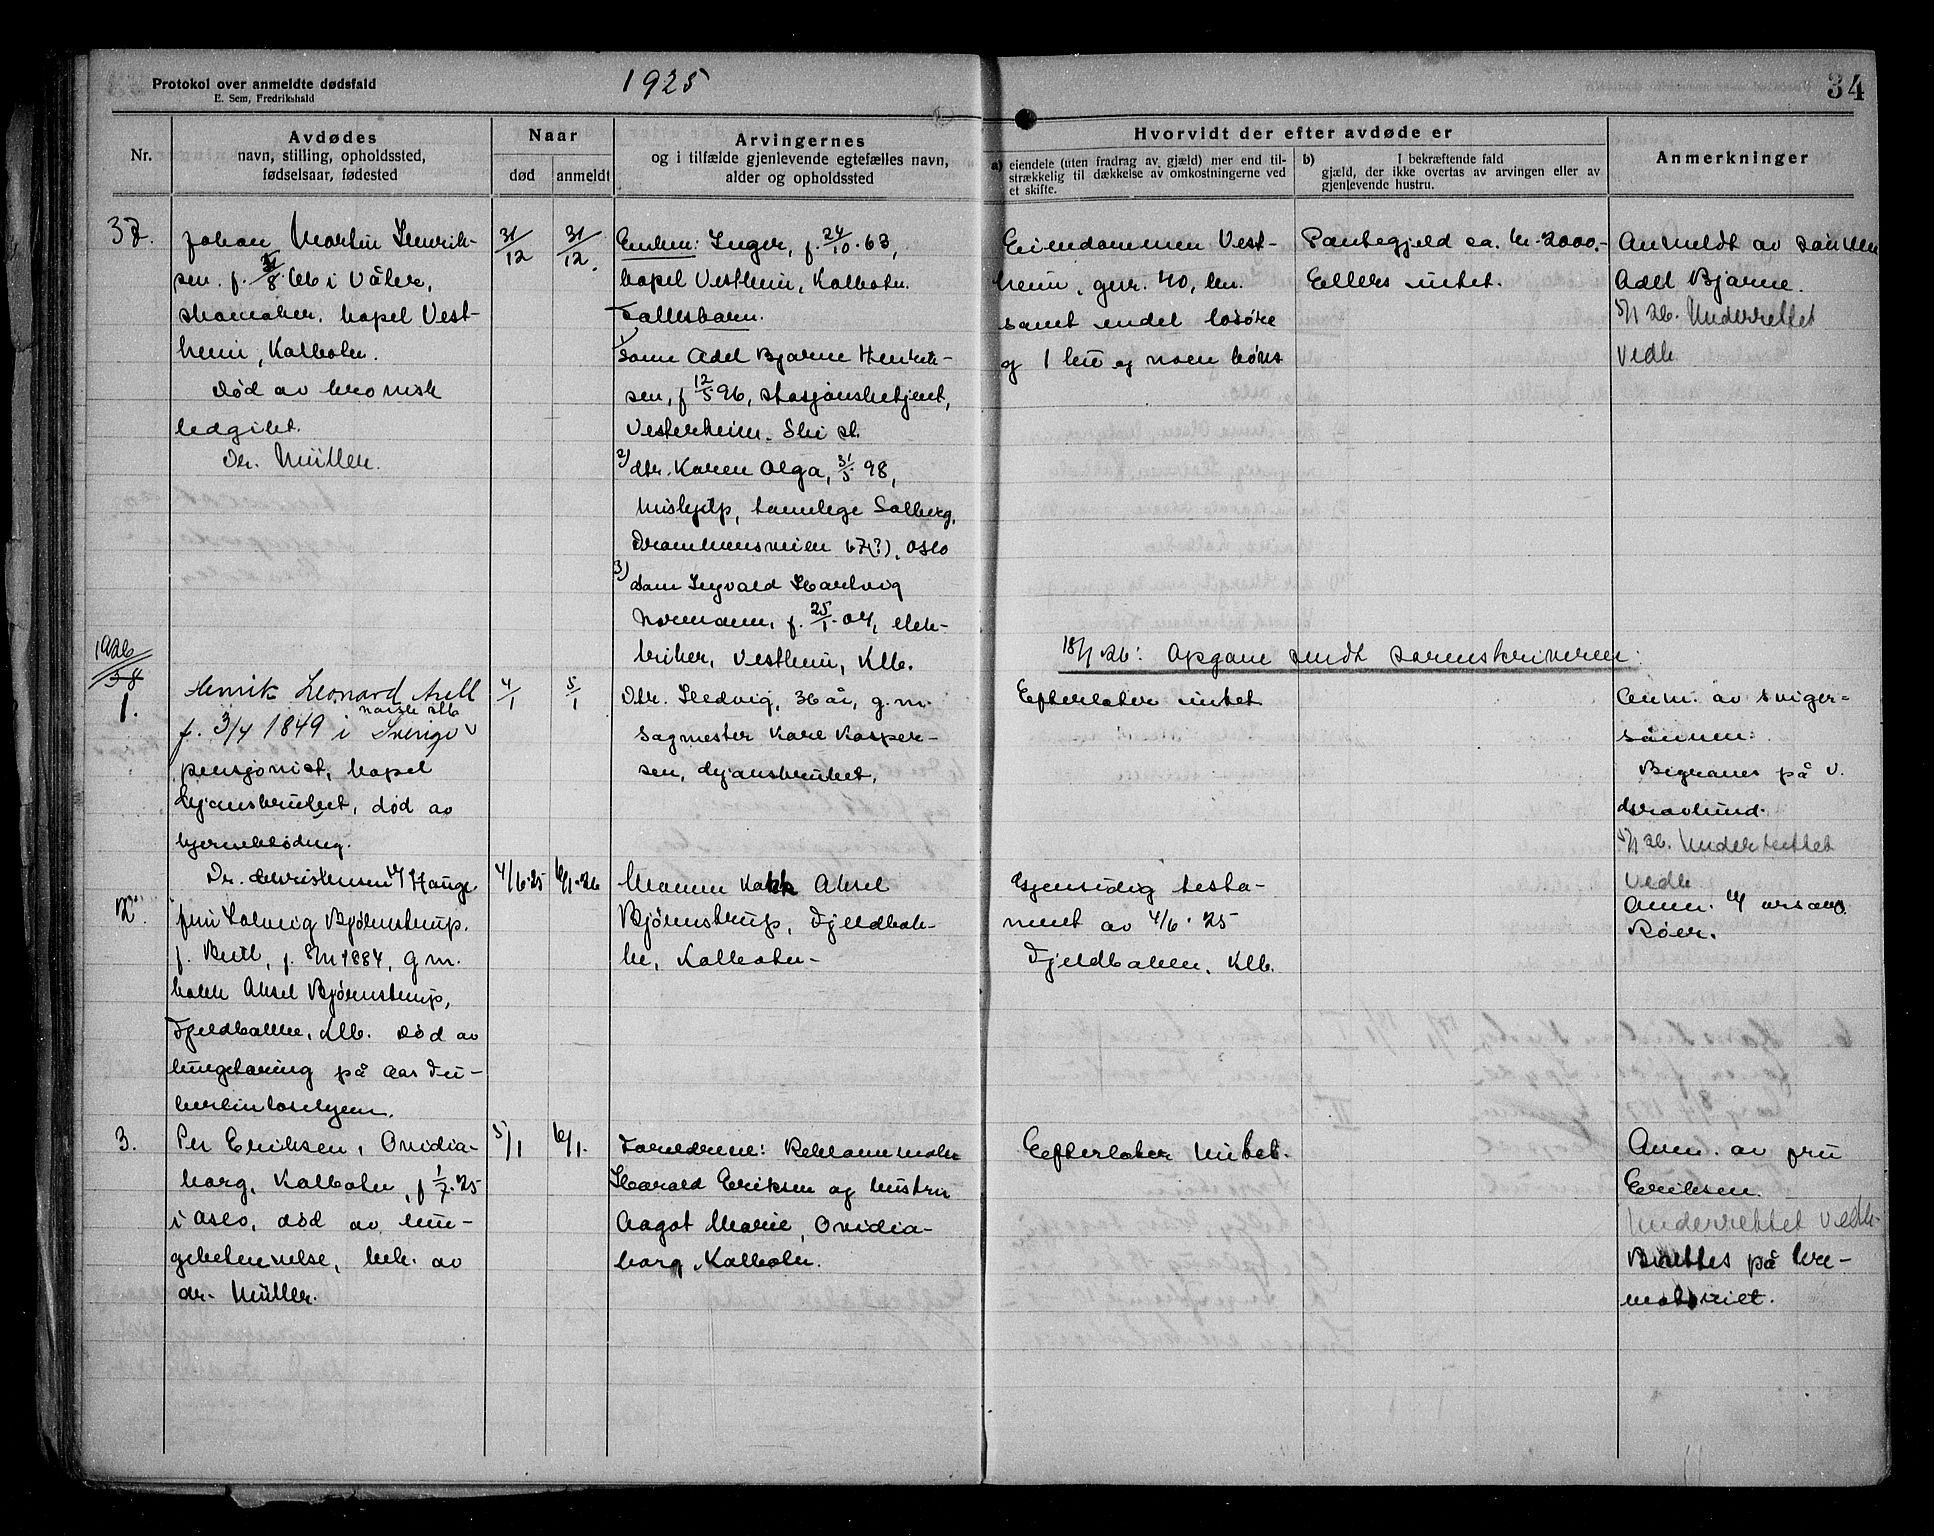 Protokol over anmeldte dødsfald
E. Sem, Fredrikshald
1925
34
Nr.
Avdødes
navn, stilling, opholdssted,
fødselsaar, fødested
Naar
død
anmeldt
Arvingernes
og i tilfælde gjenlevende egtefælles navn,
alder og opholdssted
Hvorvidt der efter avdøde er
a) eiendele (uten fradrag av gjæld) mer end til-
strækkelig til dækkelse av omkostningerne ved
et skifte.
b) I bekræftende fald
gjæld, der ikke overtas av arvingen eller av
gjenlevende hustru.
Anmerkninger
37.
Johan Martin Henrik-
sen. f. /8 66 i Våler,
skomaker, bopel Vest-
heim, Kolbotn.
Død av kronisk
Dr. Müller.
31/12
31/12.
Enken: Inger, f. 24/10.63,
bopel Vestheim, Kolbotn.
Fellesbarn.
1) Sønn Adel Bjarne Henrik-
sen, f 12/5 96, stasjonsbetjent,
Vesterheim. Ski st.
2) dtr. Karen Olga, 31/5 98,
hushjelp, tannlege Solberg,
Drammensveien 67(?), Oslo
3) Sønn Ingvald Hartvig
Normann, f. 25/1.04, elek-
triker, Vestheim, Klb.
Eiendommen Vest-
heim, gnr. 40, bn.
samt endel løsøre
og 1 ku og noen høns
Pantegjeld ca. kr. 2000.-
Ellers intet.
Anmeldt av sønnen
Adel Bjarne.
5/1 26. Underrettet
Vedk
18/1.26: Opgave sendt sorenskriveren.
1926
38
1.
Henrik Leonard Axell
f. 3/4 1849 i Sverige
norsk stb
pensjonist, bopel
Ljansbruket, død av
hjerneblødning.
Dr. Christensen v/ Hauge
4/1
5/1
Dtr. Hedvig, 36 år, g.m.
Sagmester Kare Kasper-
sen, Ljansbruket,
Efterlater intet
Anm. av sviger-
sønnen:
Begraves på v.
gravlund.
5/1 26. Underrettet
Vedk
2.
fru Solveig Bjørnstrup.
f. Beutl, f. 1884, g m.
kokk Aksel Bjørnstrup,
Fjeldbakken, Klb. Død av
lungetæring på Aas tu-
berkulosehjem.
4/6.25
6/1.26
Mannen Kokk Aksel
Bjørnstrup, Fjeldbak-
ke, Kolbotn-
Gjensidig testa-
ment av 4/6.25
Fjeldbakken, Klb.
Anm. av
Röer.
3.
Per Eriksen, Ovidia-
borg, Kolbotn, f 1/7.25
i Oslo, død av lun-
gebetennelse, bek. av
dr. Müller.
5/1
6/1.
Foreldrene: Reklamemaler
Harald Eriksen og hustru
Aagot Marie, Ovidia-
borg, Kolbotn.
Efterlater intet.
Anm. av fru
Eriksen.
Underrettet Vedk.
på kre-
matoriet.